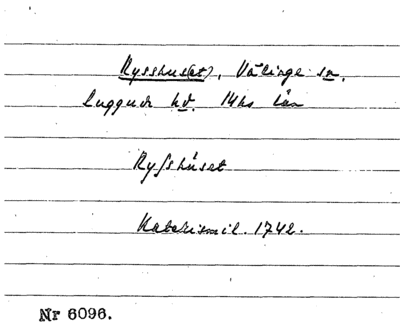 Rysshus(et), Välinge sn.
Luggude hd. Mhs län
Rysshuset
Katekismil. 1742.
Nr 6096.